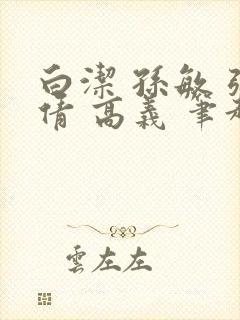 白潔 孫敏 張
倩 高義 筆
雲左左